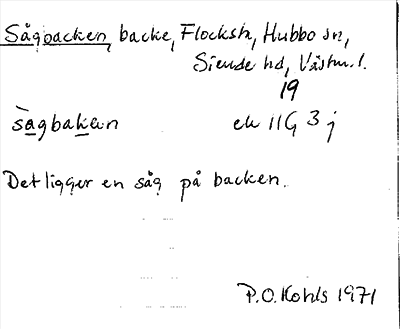 Sågbacken, backe, Flocksta, Hubbo sn,
Siende hd, Västm. l.
19
sàgbakan ek 11G 3 j
Det ligger en såg på backen.
P.O. Kohls 1971